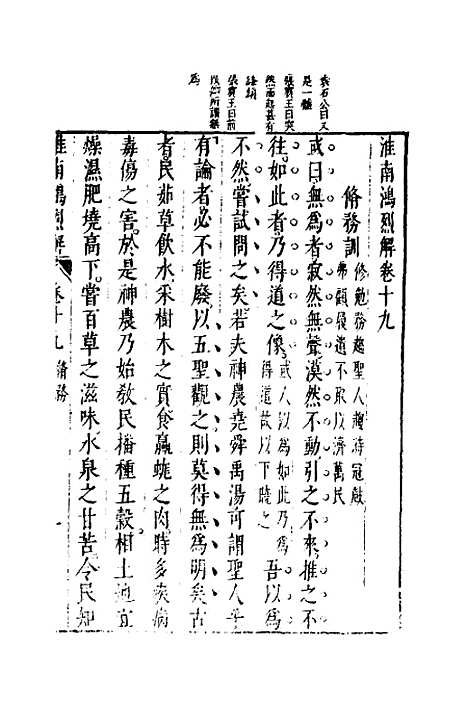 袁石公曰又
是一體
張賓王曰突
然而起甚有
張賓王曰前
為
淮南鴻烈解卷十九
脩務訓
脩勉務趨聖人趨時冠㪣
弗顧履遺不取以濟萬民
或曰無為者寂然無聲漠然不動引之不來推之不
往如此者乃得道之像
或人以為如此乃為
得道故以下曉之
吾以為
不然嘗試問之矣若夫神農堯舜禹湯可謂聖人乎
有論者必不能廢以五聖觀之則莫得無為明矣古
者民茹草飲水采樹木之實食蠃蛖之肉時多疾病
毒傷之害於是神農乃始敎民播種五穀相土地宜
燥濕肥墝高下嘗百草之滋味水泉之甘苦令民知
淮南鴻烈解 卷十九 脩務